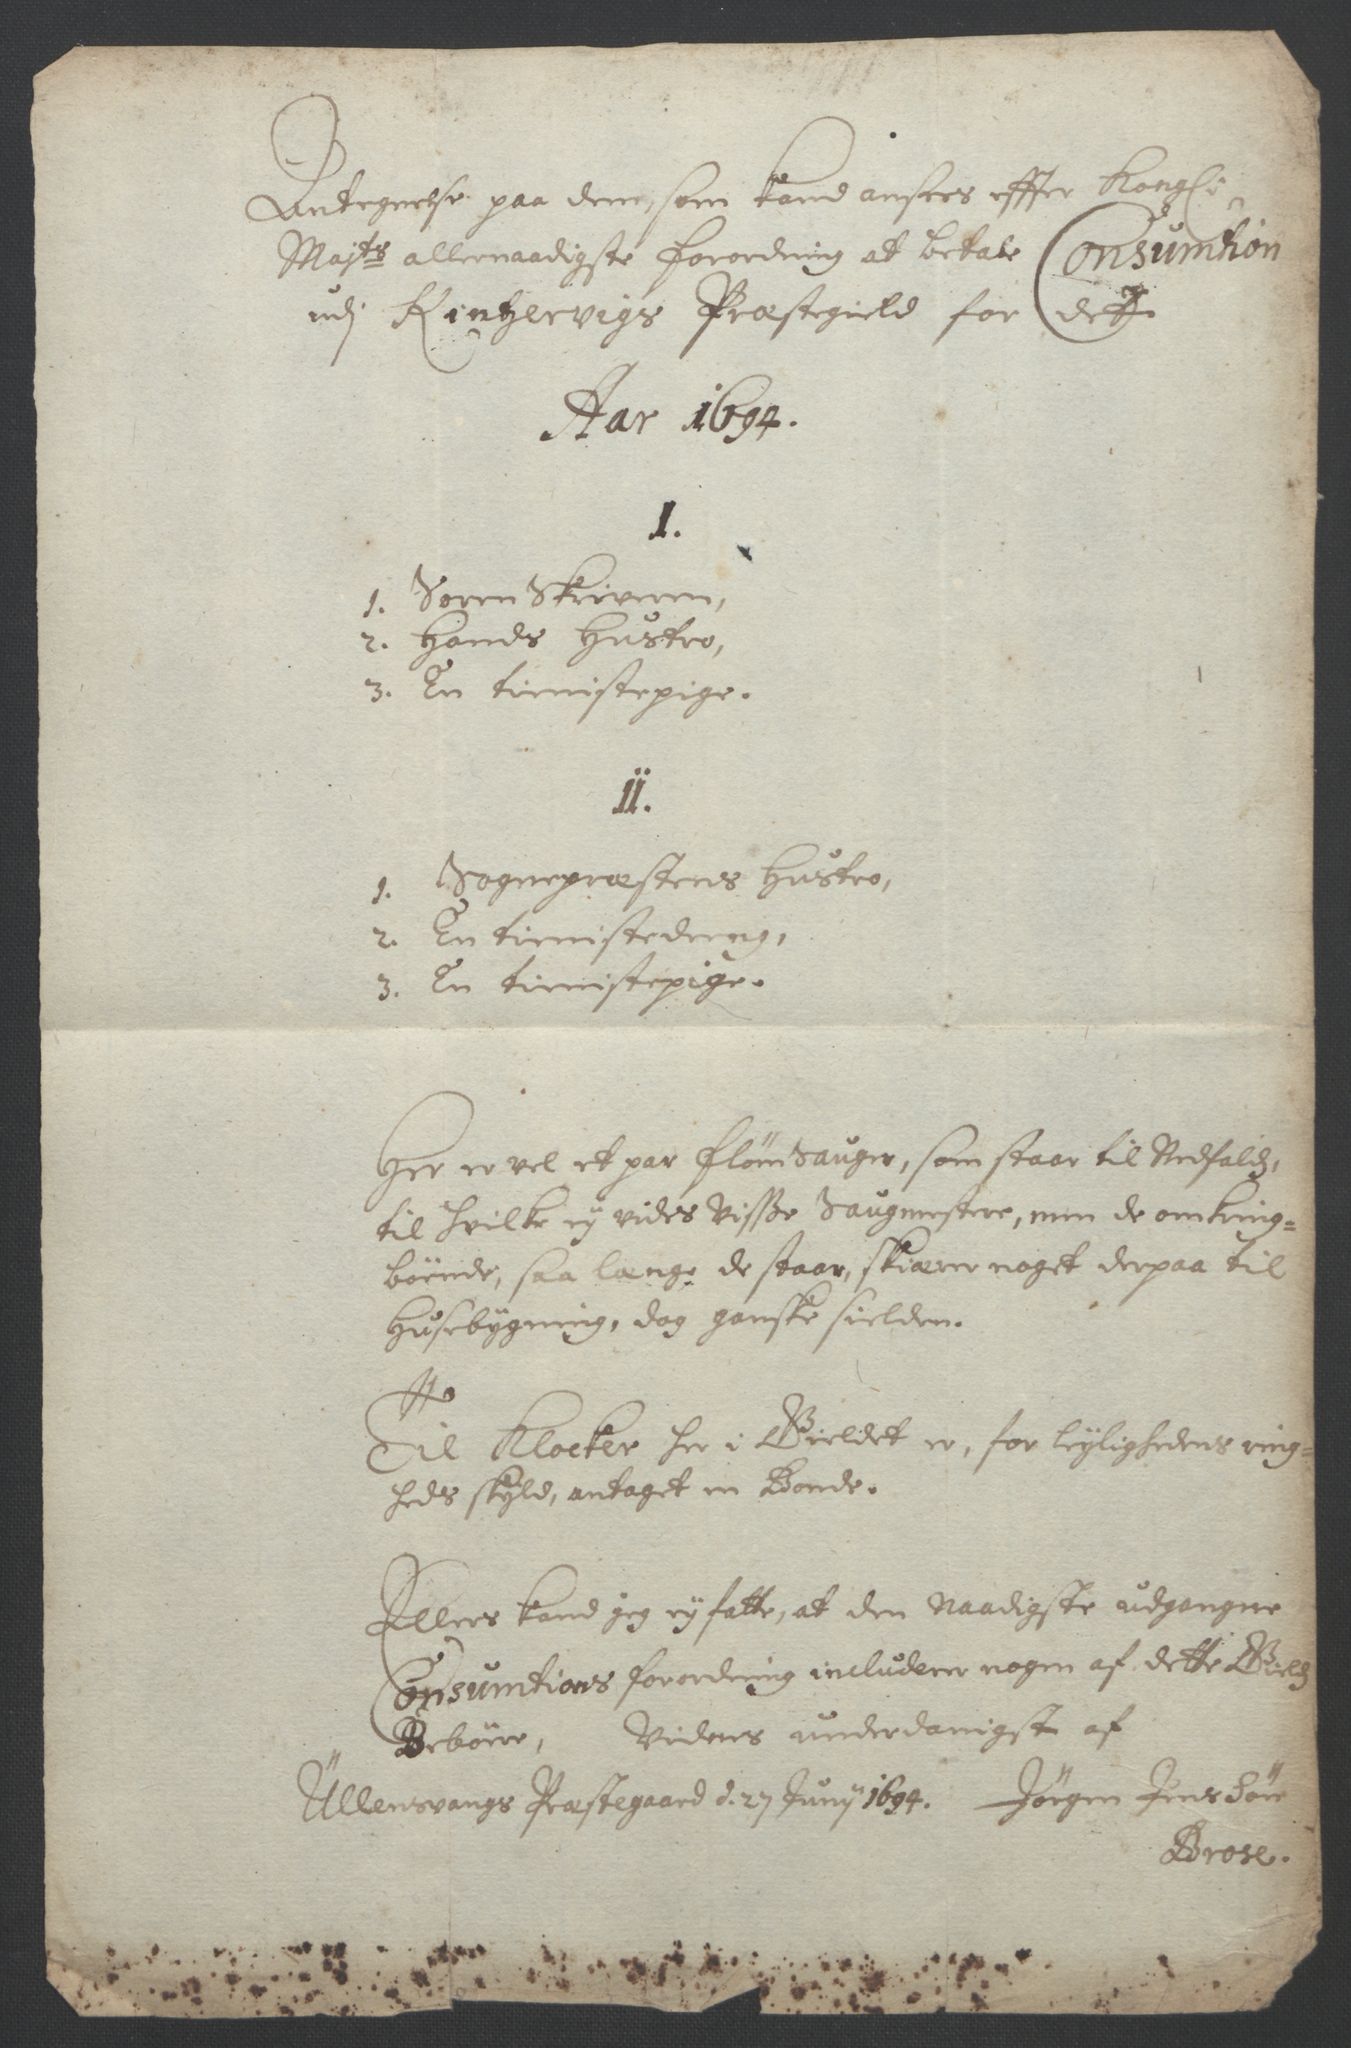 Antegnelse paa dem, som kand ansees effter Kongl:
Majts allernaadigste forordning at betale Consumtion
udj Kintzervigs Præstegield for dette
Aar 1694.
I.
1. Søren Skriveren,
2. Hands Hustro,
3. En tienistepige.
II.
1. Sognepræstens Hustro,
2. En tienistedreng,
3. En tienistepige.
Her er vel et par flom Sauger, som staar til Nedfalds,
til hvilke ey vides Visse Saugmestere, men de omkring=
böende, saa længe de staar, skiærer noget derpaa til
Husebygning, dog ganske sielden.
Til Klocker her i Gieldet er, for leylighedens ring=
heds skyld, antaget en Bonde.
Ellers kand jeg ey fatte, at den Naadigste udgangne
Consumtions forordning includerer nogen af dette Gields
Beböere, Vidnes underdanigst af
Ullensvangs Præstegaard d. 27 Junij 1694. Jörgen Jenssön
Brose.